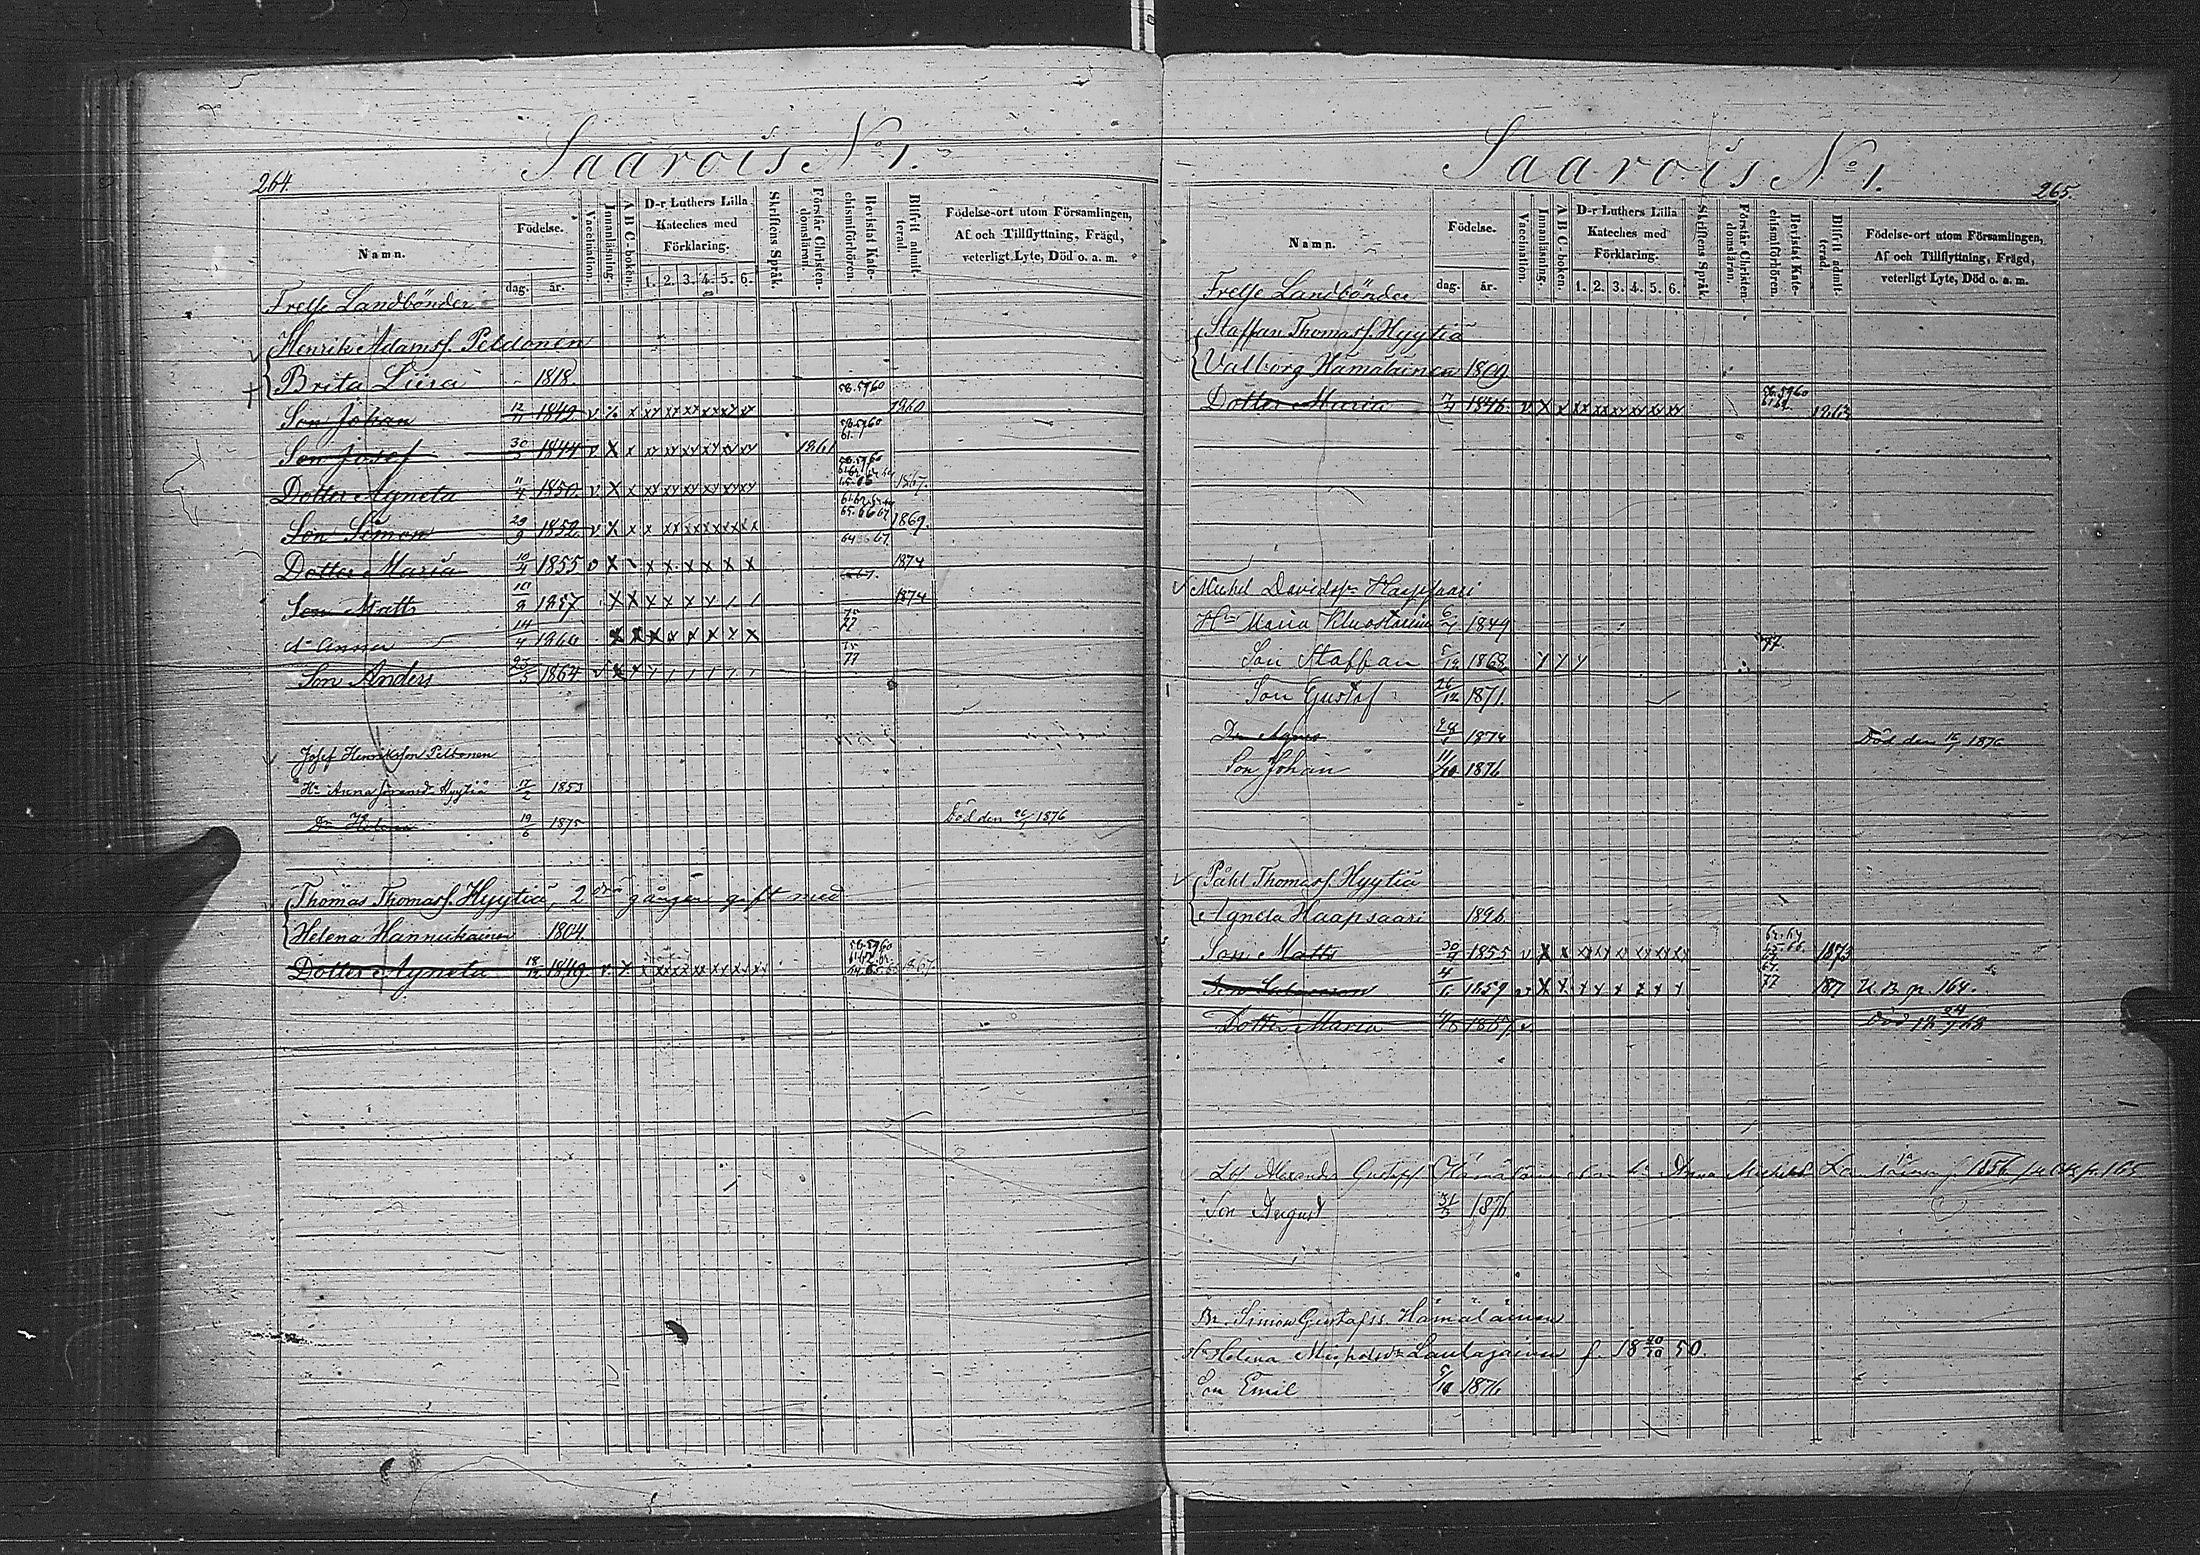 264.
Saarois No 1.
Namn.
Födelse.
dag. år.
Vaccination.
Innanläsning.
A B C-boken.
D-r Luthers Lilla Kateches med Förklaring.
1. 2. 3. 4. 5. 6.
Skriftens Språk.
Förstår Christendomsläran.
Bevistat Katechismförhören.
Blifvit admitterad.
Födelse-ort utom Församlingen, Af och Tillflyttning, Frägd, veterligt Lyte, Död o. a. m.
Frelse Landbönder
Henrik Adamsf. Peldonen
Brita Liisa 1818.
Son Johan 12/11 1842 v x x xx xx xx xx xx xx 58.59.60 1860
Son Josef 30/3 1844 v x x xx xx xx xx xx xx 1861 58.59.60 61.
Dotter Agneta 11/4 1850. v. x x xx xx xx xx xx xx 58.59.60 1867.
Son Simon 29/9 1852 v x x x xx xx xx xx xx 65.66.67 1869.
Dotter Maria 10/4 1855 v x x x x x x x 1874
Son Matts 10/9 1857 x x x x x x 67. 1874
Dr Anna 14/4 1860 x x x x x x x x 75 77
Son Anders 25/3 1864 v x x 75 77
Josef Henriksson Peltonen
Hu Anna Göransdr Hyytiä 17/2 1853
Dr Helena 19/6 1875 Död den 26/ 1876
Thomas Thomasf. Hyytiä, 2dra gången gift med
Helena Hannukainen 1804.
Dotter Agneta 18/12 1849 v. x x xx xx xx xx xx xx 58.59.60 1867
Saarois No 1.
265.
Namn.
Födelse.
dag. år.
Vaccination.
Innanläsning.
A B C-boken.
D-r Luthers Lilla Kateches med Förklaring.
1. 2. 3. 4. 5. 6.
Skriftens Språk.
Förstår Christendomsläran.
Bevistat Katechismförhören.
Blifvit admitterad.
Födelse-ort utom Församlingen, Af och Tillflyttning, Frägd, veterligt Lyte, Död o. a. m.
Frelse Landbönder
Staffan Thomasf. Hyytiä
Valborg Hämäläinen 1809
Dotter Maria 1846. v x x xx xx xx xx xx xx 58.59.60 1863
Michel Davidsson Haapsaari
Hu Maria 6/ 1849
Son Staffan 5/12 1868 77.
Son Gustaf 26/12 1871.
Dr Agnes 1874 Död den 1876
Son Johan 11/10 1876
Påhl Thomasf. Hyytiä
Agneta Haapsaari 1826
Son Matts 30/9 1855 v x x xx xx xx xx xx 1873
Son Salomon 4/ 1859 v x x x x x x x x 67. 77 187 U. B. p. 164.
Dotter Maria 1867 v. Död 18 24/7 68
Alexander Gustafss Hämäläinen Anna 1856 p. 165
Son August 31/3 1876
Br. Simon Gustafss. Hämäläinen
Hu Helena Michelsdr Lautajainen f. 18 20/10 50.
Son Emil 5/10 1876